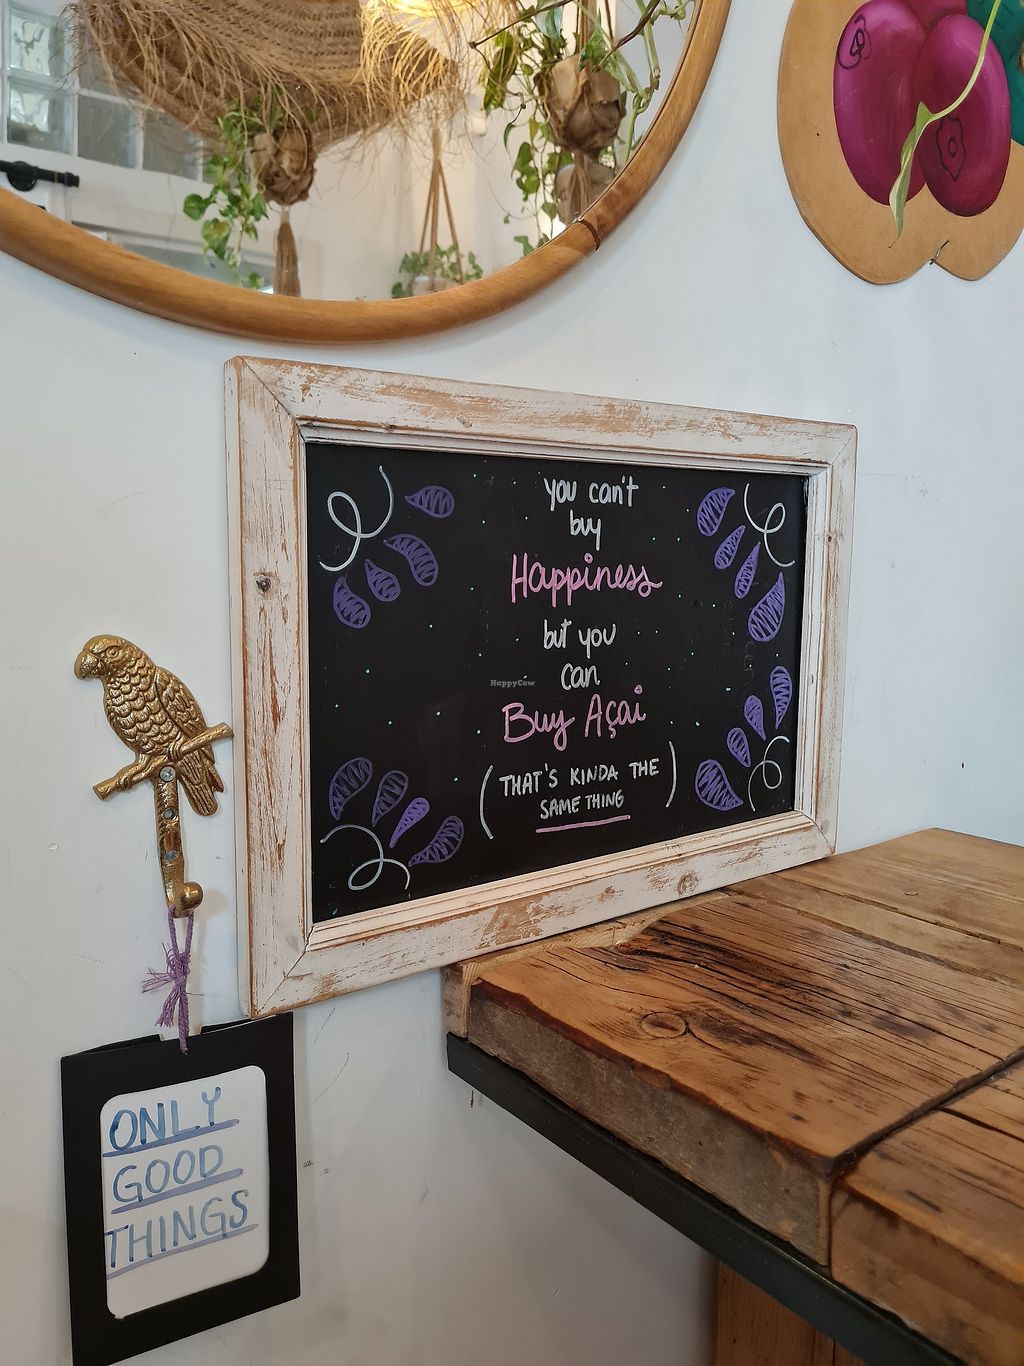 you can't
buy
Happiness
but you
can
HappyCow
Buy Açai
(THAT'S KINDA THE
SAME THING)
ONLY
GOOD
THINGS